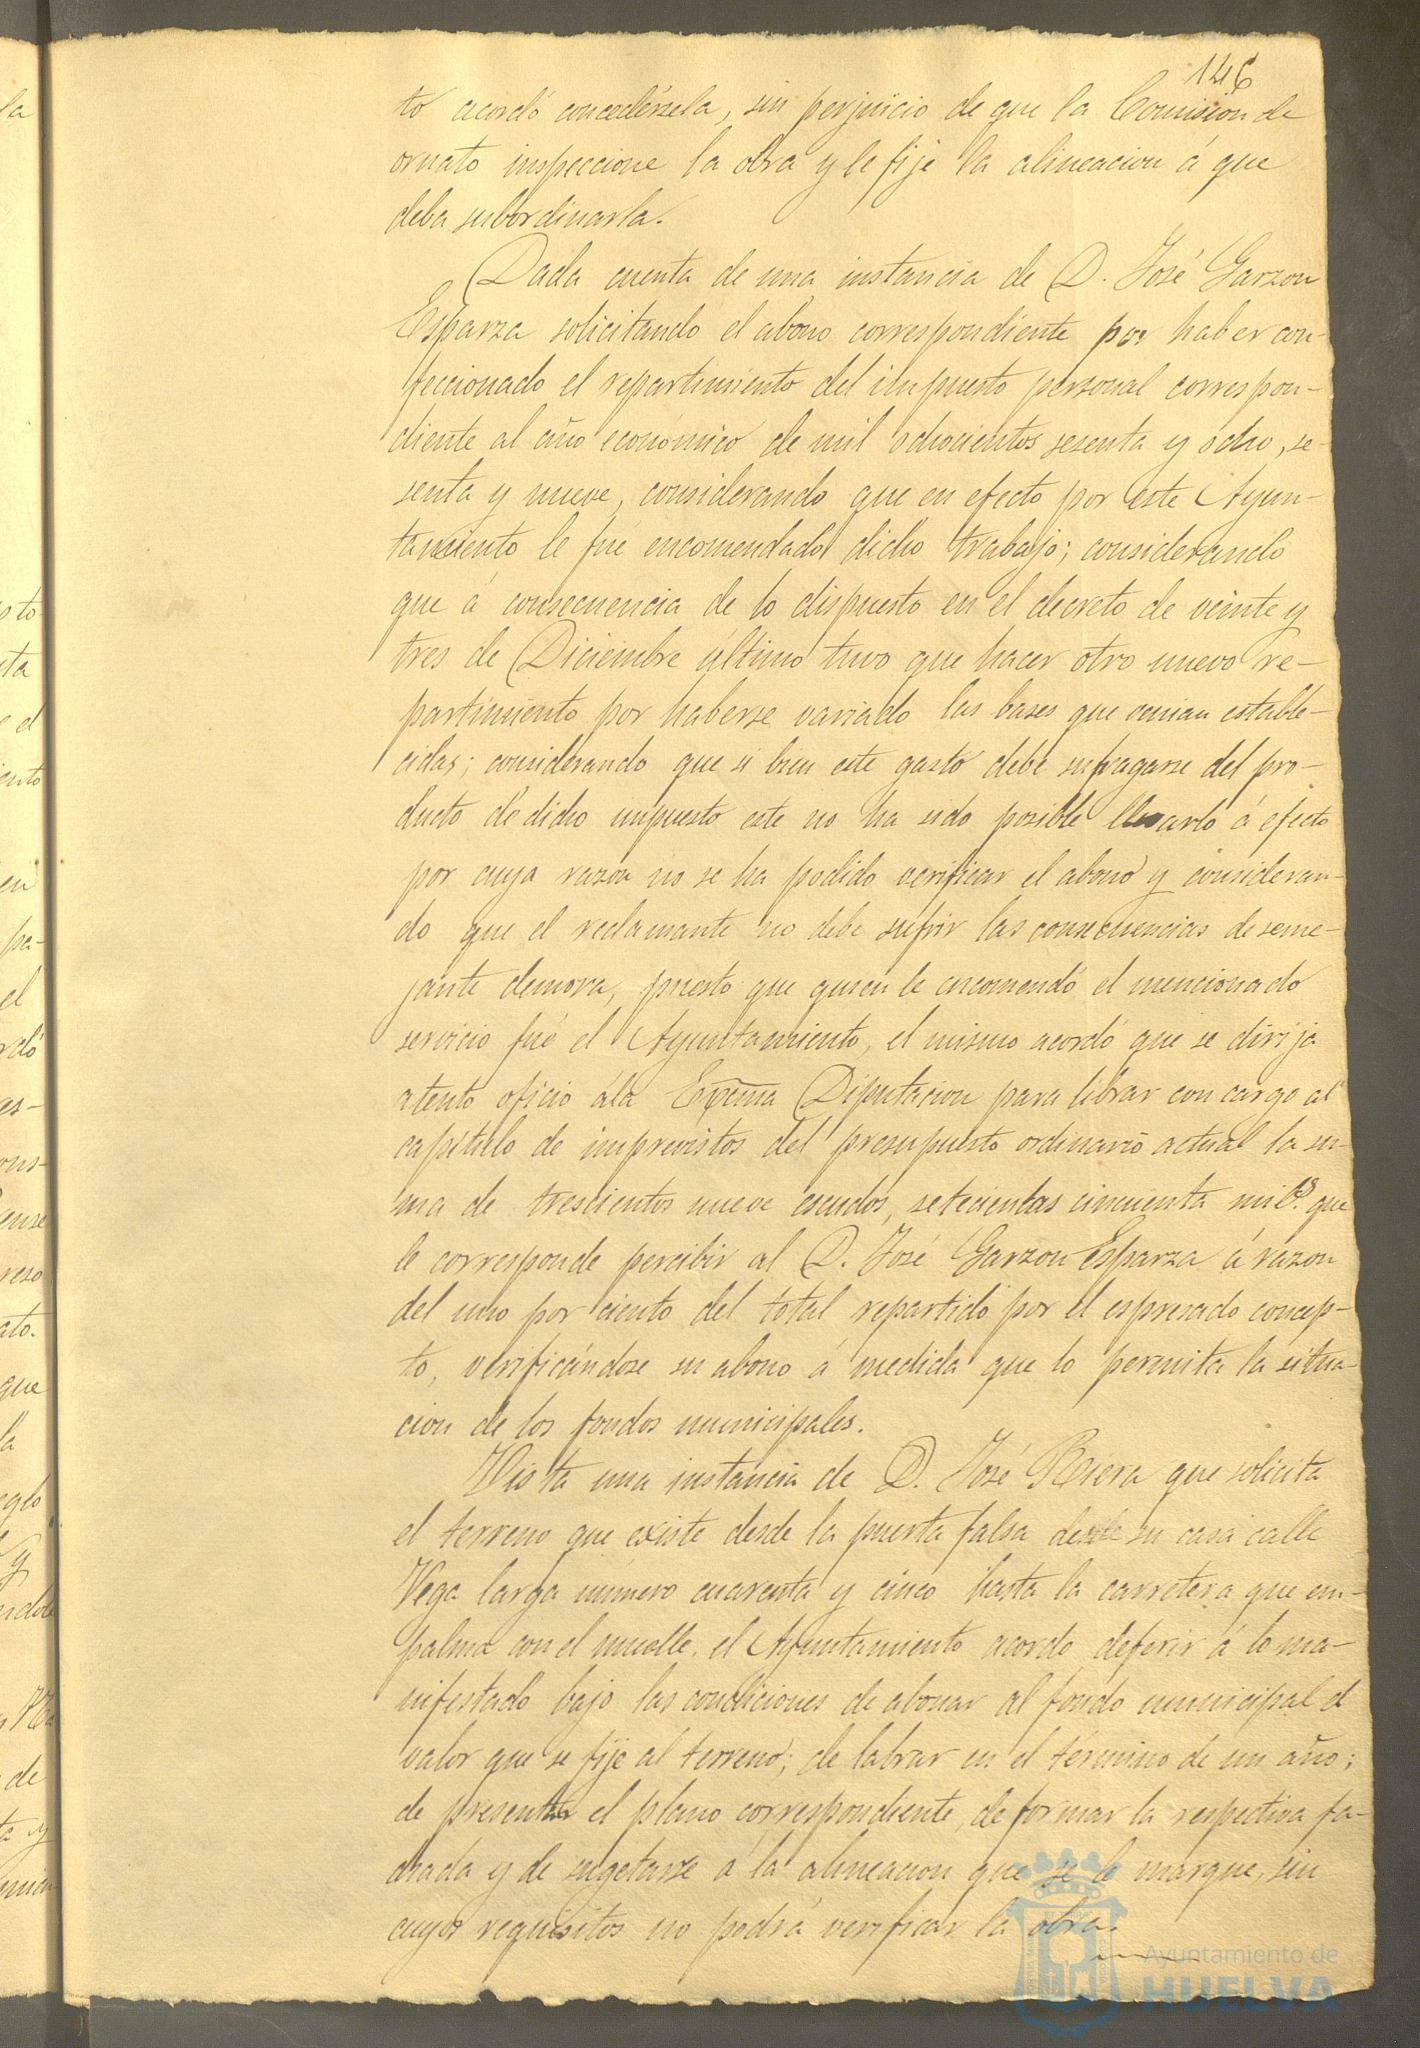 146
to acordó concedérsela, sin perjuicio de que la Comision de
ornato inspeccione la obra y le fije la alineacion á que
deba subordinarla.
Dada cuenta de una instancia de D. José Garzon
Esparza solicitando el abono correspondiente por haber con-
feccionado el repartimiento del impuesto personal correspon-
diente al año económico de mil ochocientos sesenta y ocho, se-
senta y nueve, considerando que en efecto por este Ayun-
tamiento le fué encomendado dicho trabajo; considerando
que á consecuencia de lo dispuesto en el decreto de veinte y
tres de Diciembre último tuvo que hacer otro nuevo re-
partimiento por haberse variado las bases que venian estable-
cidas; considerando que si bien este gasto debe sufragarse del pro-
ducto de dicho impuesto este no ha sido posible llevarlo á efecto
por cuya razon no se ha podido verificar el abono y consideran-
do que el reclamante no debe sufrir las consecuencias de seme-
jante demora, puesto que quien le encomendó el mencionado
servicio fué el Ayuntamiento, el mismo acordó que se dirija
atento oficio á la Excma Diputacion para librar con cargo al
capítulo de imprevistos del presupuesto ordinario actual la su-
ma de trescientos nueve escudos, setecientas cincuenta mil.s que
le corresponde percibir al D. José Garzon Esparza á razon
del uno por ciento del total repartido por el espresado concep-
to, verificándose su abono á medida que lo permita la situa-
cion de los fondos municipales.
Vista una instancia de D. José Riera que solicita
el terreno que existe desde la puerta falsa de su casa calle
Vega larga número cuarenta y cinco hasta la carretera que em-
palma con el muelle, el Ayuntamiento acordó deferir á lo ma-
nifestado bajo las condiciones de abonar al fondo municipal el
valor que se fije al terreno; de labrar en el término de un año;
de presentar el plano correspondiente, de formar la respectiva fa-
chada y de sugetarse á la alineacion que se le marque, sin
cuyos requisitos no podrá verificar la obra.
Ayuntamiento de
HUELVA